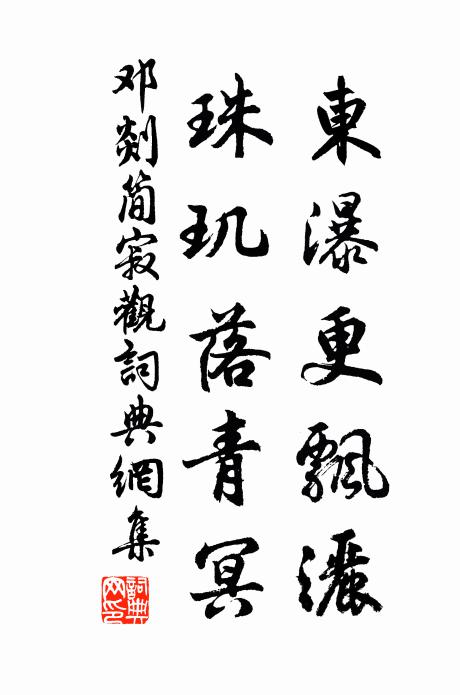 東瀑更飄灑
珠玑落青冥
邓剡简寂觀詞典網集
詞典網印